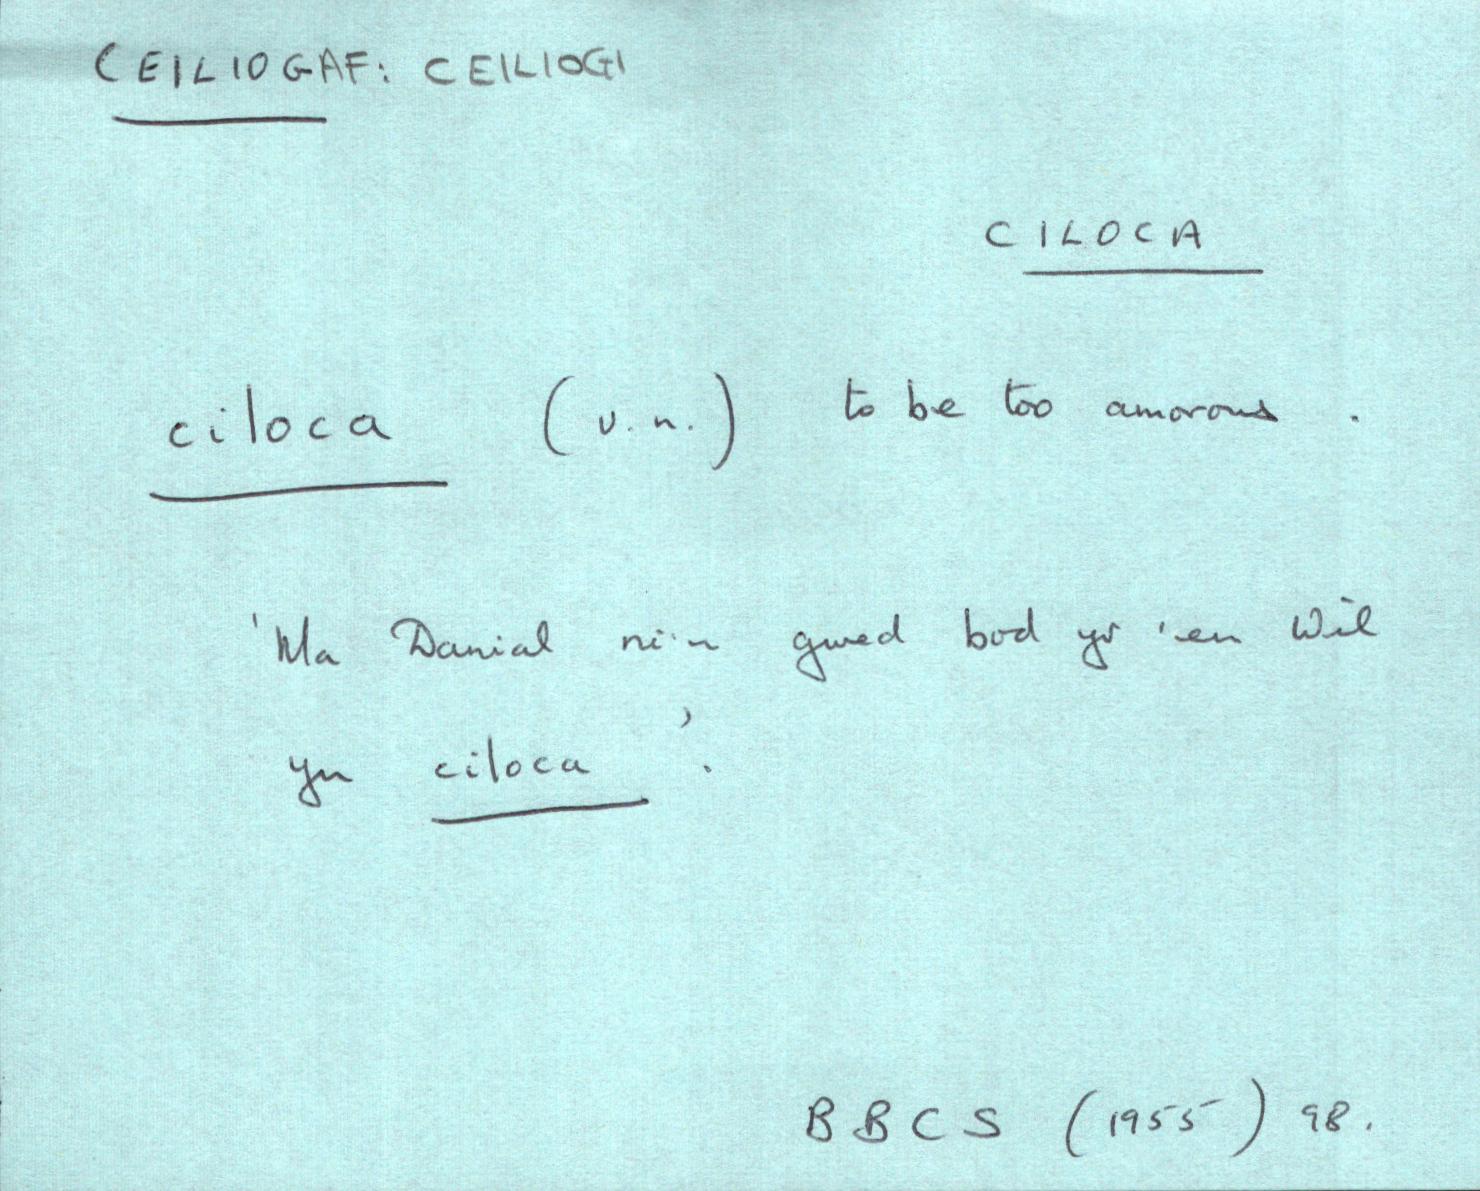 CEILIOGAF: CEILIOGI
CILOCA
ciloca (v.n.) to be too amorous.
'Ma Danial ni'n gwed bod yr 'en Wil
yn ciloca'.
BBCS (1955) 98.